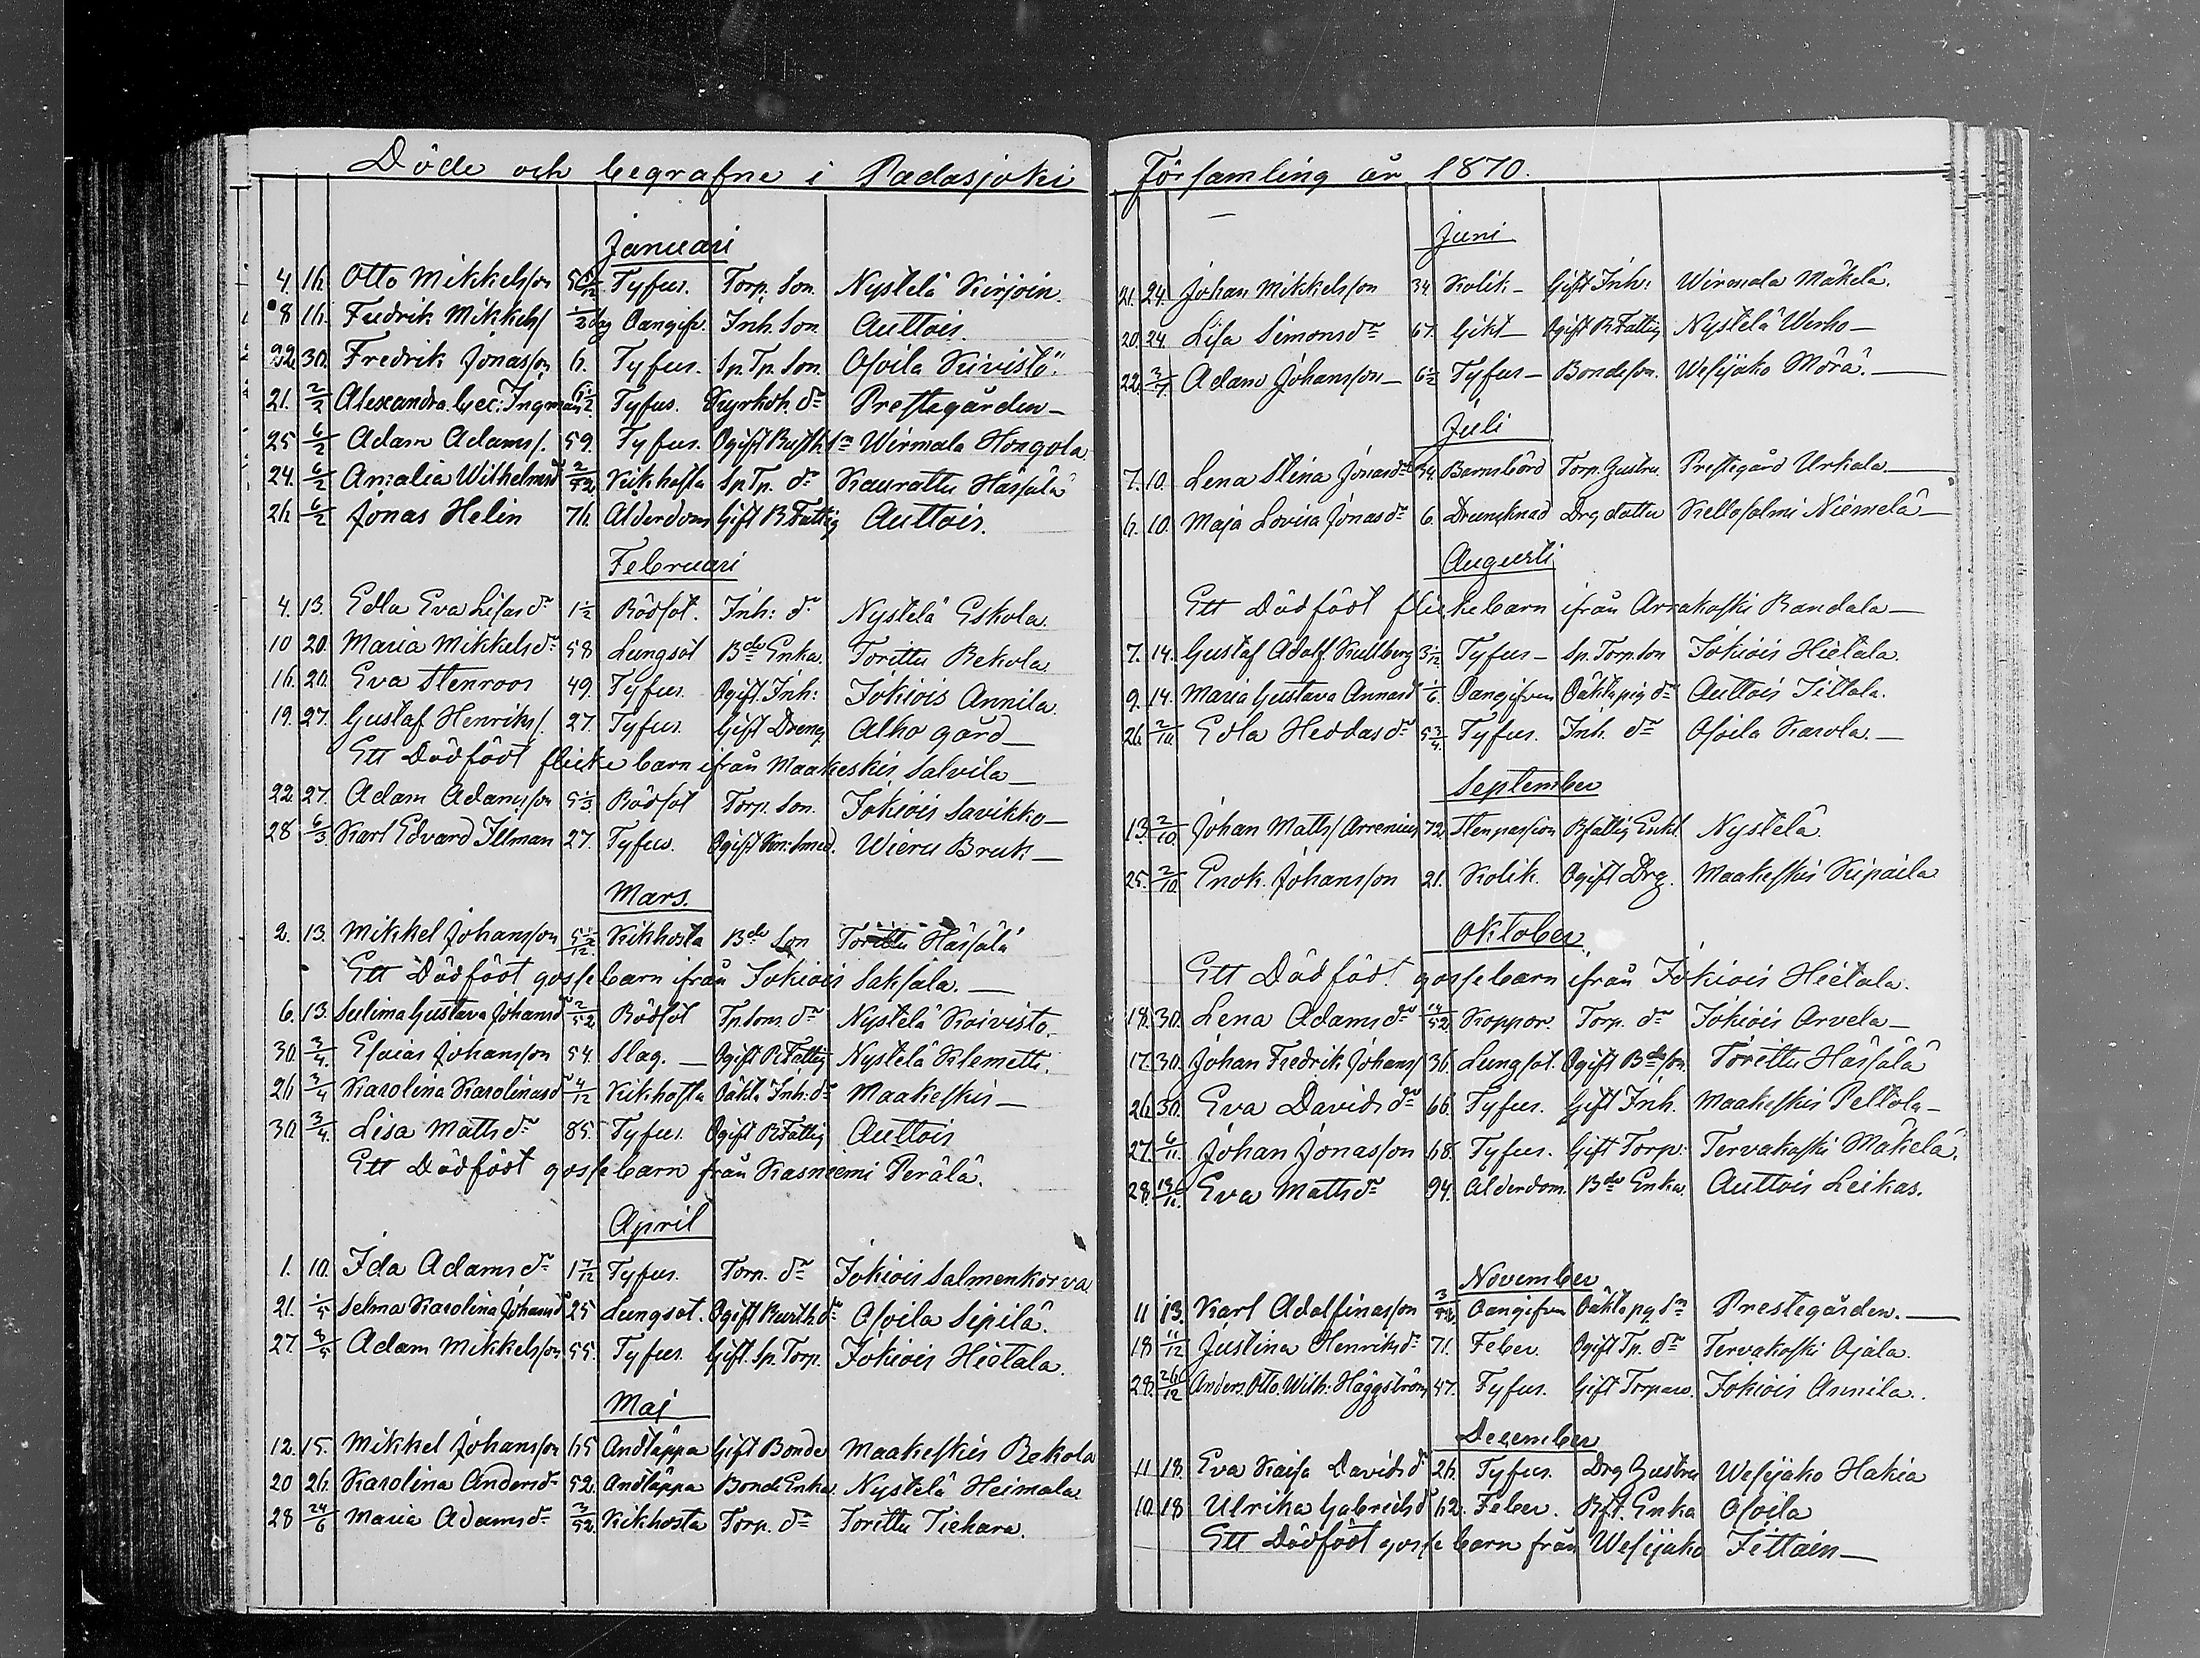 Döde och begrafne i Padasjoki
Januari
4. 16. Otto Mikkelsson 5 5/12 Tyfus. Torp. Son. Nystelä Kirjoin.
8 16. Fredrik Mikkels/ 1/2 dg Oangifv. Inh. Son. Auttois.
22. 30. Fredrik Jonasson 6. Tyfus. Sp. Tp. Son. Osoila Kivistö.
21. 2/2 Alexandra Cec: Ingman 6 1/2 Tyfus. Kyrkoh. dr Prestegården —
25 6/2 Adam Adams/. 59. Tyfus. Ogift Rusth. Sn Wirmala Hongola
24. 6/2 Amalia Wilhelmsdr 2/52 Kikhosta Sp. Tp. dr Kaurattu Hässälä
26. 6/2 Jonas Helin 76. Ålderdom Gift R. Fattig Auttois.
Februari
4. 13. Edla Eva Lisas dr 1 1/2 Rödsot. Inh: dr Nystelä Eskola.
10 20. Maria Mikkels dr 58 Lungsot Bde Enka. Torittu Rekola
16. 20. Eva Stenroos 49. Tyfus. Ogift. Inh: Jokiois Annila.
19. 27. Gustaf Henriks/. 27. Tyfus. Gift Dreng Alho gård —
Ett Dödfödt flickebarn ifrån Maakeskis Salvila —
22. 27. Adam Adamsson 5 1/3 Rödsot Torp. Son. Jokiois Savikko —
28 6/3 Karl Edvard Illman 27. Tyfus. Ogift Smed. Wieru Bruk —
Mars.
2. 13. Mikkel Johansson 5 1/2/12 Kikhosta Bde Son Torittu Hässälä
Ett Dödfödt gossebarn ifrån Jokiois Saksala. —
6. 13. Sulima Gustava Johansdr 2/52 Rödsot Tp. Sons. dr Nystelä Koivisto.
30. 3/4. Esaias Johansson 54. Slag. — Ogift R. Fattig Nystelä Klemetti.
26 3/4 Karolina Karolinasdr 4/12 Kikhosta Oäkta Inh: dr Maakeskis —
30. 3/4. Lisa Matts dr 85. Tyfus. Ogift R. Fattig Auttois
Ett Dödfödt gossebarn från Kasniemi Perälä.
April
1. 10. Ida Adams dr 1 7/12 Tyfus. Torp. dr Jokiois Salmenkorva
21. 1/5 Selma Karolina Johansdr 25 Lungsot. Ogift Rusth. dr Osoila Sipilä.
27. 8/5 Adam Mikkelsson 55. Tyfus. Gift. Sp. Torp. Jokiois Hietala.
Maj
12. 15. Mikkel Johansson 65 Andtäppa Gift Bonde Maakeskis Rekola
20 26. Karolina Andersdr 52. Andtäppa Bonde Enka. Nystelä Heimala
28 24/6 Maria Adams dr 3/52 Kikhosta Torp. dr Torittu Tiehara.
Församling år 1870.
Juni
21. 24. Johan Mikkelsson 34 Kolik — Gift Inh: Wirmala Mäkelä.
20. 24 Lisa Simons dr 67. Gikt — Ogift R. Fattig Nystelä Werho —
22. 3/7. Adam Johansson — 6 1/2 Tyfus — Bondeson. Wesijako Mörä. —
Juli
7. 10. Lena Stina Jonasdr 34. Barnsbörd Torp. Hustru. Prestegård Urkala —
6. 10. Maja Lovisa Jonasdr 6. Drunknad Drg dotter Kellosalmi Niemelä —
Augusti
Ett Dödfödt flickebarn ifrån Arrakoski Randala —
7. 14. Gustaf Adolf. Kullberg 3 1/12 Tyfus — Sp. Torp. Son Jokiois Hietala.
9. 14. Maria Gustava Annasdr 1/6. Oangifven Oäkta pig. dr Auttois Jittola.
26. 2/10. Edla Heddas dr 5 3/4. Tyfus. Inh. dr Osoila Karola. —
September
13. 2/10. Johan Matts/ Arrenius 72. Stenpassion R. fattig Enkl. Nystelä.
25. 2/10. Enok. Johansson 21. Kolik. Ogift Drg. Maakeskis Kipaila
Oktober
Ett Dödfödt gossebarn ifrån Jokiois Hietala.
18. 30. Lena Adams dr 14/52 Koppor. Torp. dr Jokiois Arvela —
17. 30. Johan Fredrik Johans/ 36. Lungsot. Ogift Bdeson. Torittu Hässälä
26. 30. Eva Davids dr 66. Tyfus. Gift Inh. Maakeskis Peltola —
27. 6/11. Johan Jonasson 68. Tyfus. Gift Torp: Tervakoski Mäkelä.
28. 13/11. Eva Matts dr 94. Ålderdom. Bde Enka. Auttois Leikas.
November
11 13. Karl Adolfinasson 3/52 Oangifven Oäkta pg Sn Prestegården. —
18 11/12 Justina Henriksdr 71. Feber. Ogift Tp. dr Tervakoski Ojala.
28. 26/12 Anders. Otto. Wilh: Häggström 47. Tyfus. Gift Torpare. Jokiois Annila.
December
11 18. Eva Kaisa Davids dr 26. Tyfus. Drg Hustru Wesijako Hakia
10. 18 Ulrika Gabrielsdr 62. Feber. Rft. Enka Osoila
Ett Dödfödt gossebarn från Wesijako Jittain —